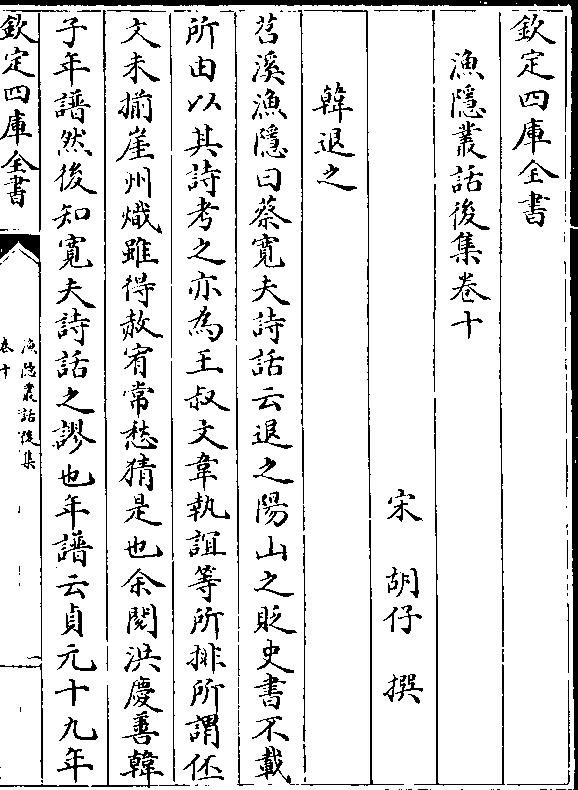 欽定四庫全書
漁隱叢話後集卷十
宋 胡仔 撰
韓退之
苕溪漁隱曰蔡寛夫詩話云退之陽山之貶史書不載
所由以其詩考之亦為王叔文韋執誼等所排所謂伾
文未揃崖州熾雖得赦宥常愁猜是也余閱洪慶善韓
子年譜然後知寛夫詩話之謬也年譜云貞元十九年
欽定四庫全書
漁隱叢話後集
卷十
一